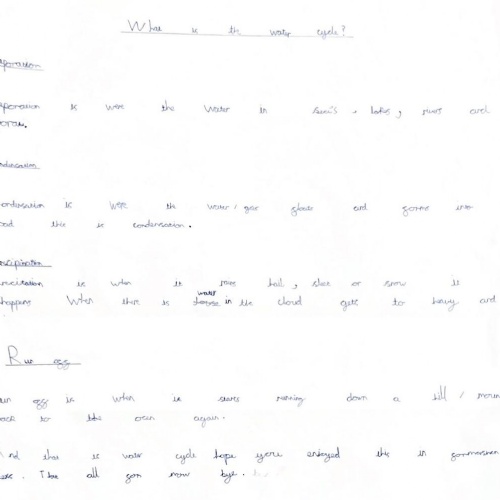 What is the water cycle?
poration
poration is were the water in seas , lakes , rivers and
ndensation
ondensation is were the water / gas floats and forms into
this is condensation.
ecipitation
recitation is when it rains hail , sleet or snow it
happens When there is water in the cloud gets to heavy and
Run off
un off is when it starts running down a hill /
back to the again.
And that is water cycle hope you enjoyed this
all for now bye.